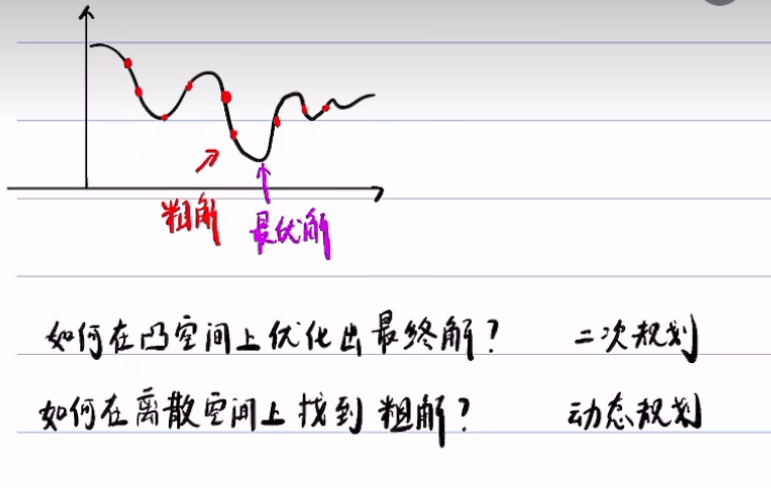 粗解
最优解
如何在凸空间上优化出最终解？ 二次规划
如何在离散空间上找到粗解？ 动态规划